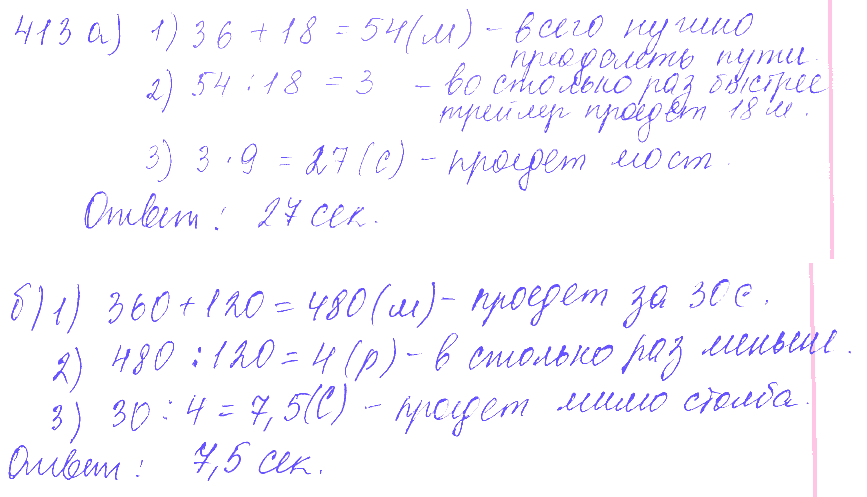 413 а) 1) 36 + 18 = 54 (м) - всего нужно
преодолеть пути.
2) 54 : 18 = 3 - во столько раз быстрее
трейлер проедет 18 м.
3) 3 · 9 = 27 (с) - проедет мост.
Ответ: 27 сек.
б) 1) 360 + 120 = 480 (м) - проедет за 30 с.
2) 480 : 120 = 4 (р) - в столько раз меньше.
3) 30 : 4 = 7,5 (С) - проедет мимо столба.
Ответ: 7,5 сек.